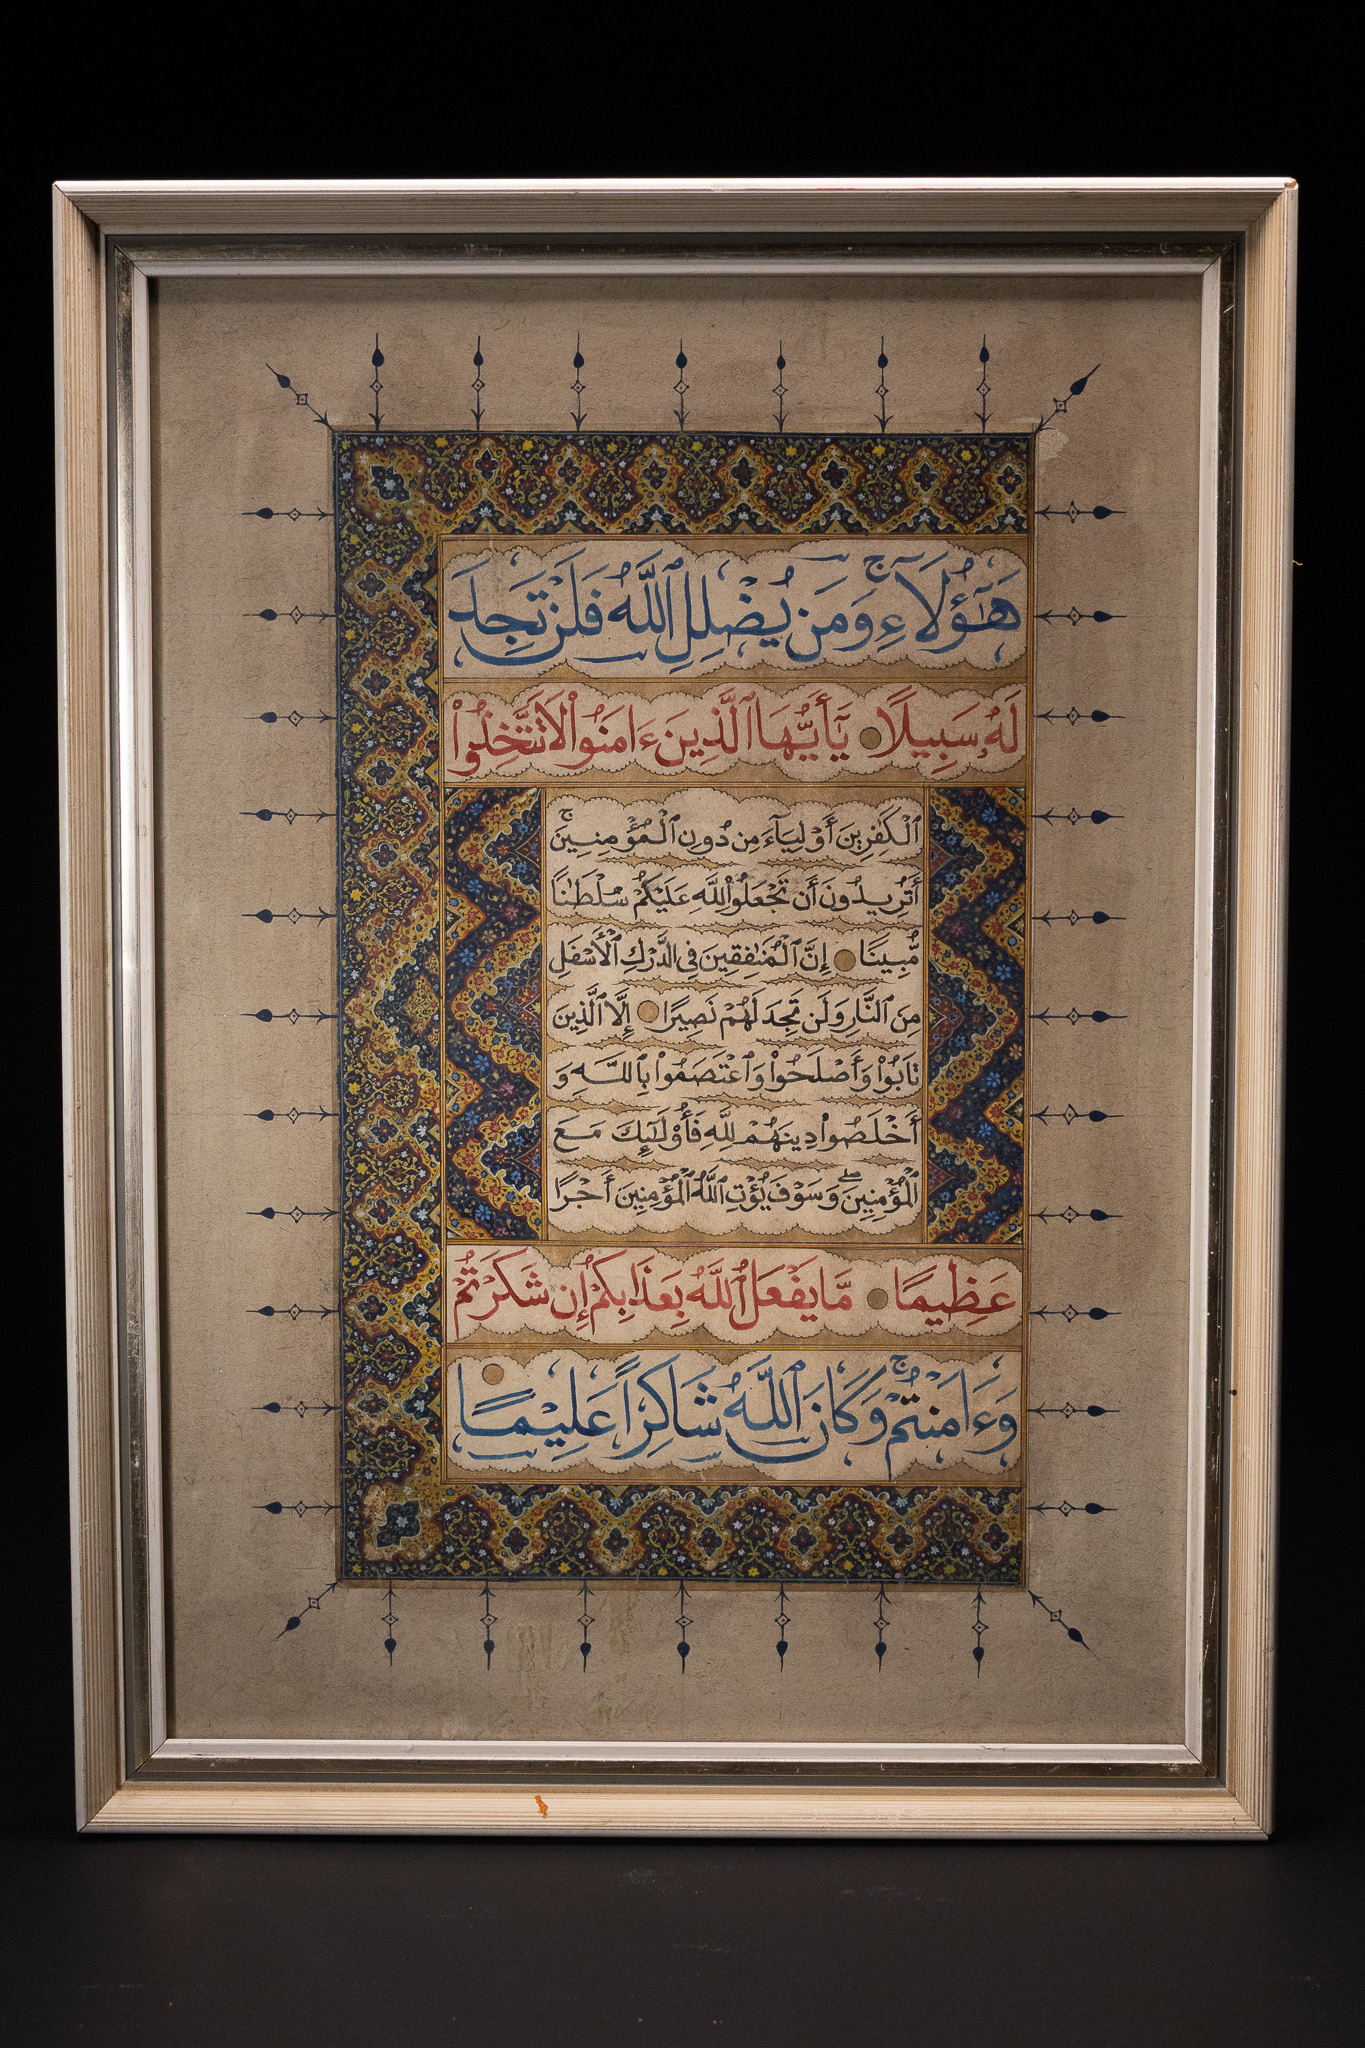 هَٰٓؤُلَآءِ ۚ وَمَن يُضْلِلِ ٱللَّهُ فَلَن تَجِدَ
لَهُۥ سَبِيلًا ۝ يَٰٓأَيُّهَا ٱلَّذِينَ ءَامَنُوا۟ لَا تَتَّخِذُوا۟
ٱلْكَٰفِرِينَ أَوْلِيَآءَ مِن دُونِ ٱلْمُؤْمِنِينَ ۚ
أَتُرِيدُونَ أَن تَجْعَلُوا۟ لِلَّهِ عَلَيْكُمْ سُلْطَٰنًا
مُّبِينًا ۝ إِنَّ ٱلْمُنَٰفِقِينَ فِى ٱلدَّرْكِ ٱلْأَسْفَلِ
مِنَ ٱلنَّارِ وَلَن تَجِدَ لَهُمْ نَصِيرًا ۝ إِلَّا ٱلَّذِينَ
تَابُوا۟ وَأَصْلَحُوا۟ وَٱعْتَصَمُوا۟ بِٱللَّهِ وَ
أَخْلَصُوا۟ دِينَهُمْ لِلَّهِ فَأُو۟لَٰٓئِكَ مَعَ
ٱلْمُؤْمِنِينَ ۖ وَسَوْفَ يُؤْتِ ٱللَّهُ ٱلْمُؤْمِنِينَ أَجْرًا
عَظِيمًا ۝ مَّا يَفْعَلُ ٱللَّهُ بِعَذَابِكُمْ إِن شَكَرْتُمْ
وَءَامَنتُمْ ۚ وَكَانَ ٱللَّهُ شَاكِرًا عَلِيمًا ۝